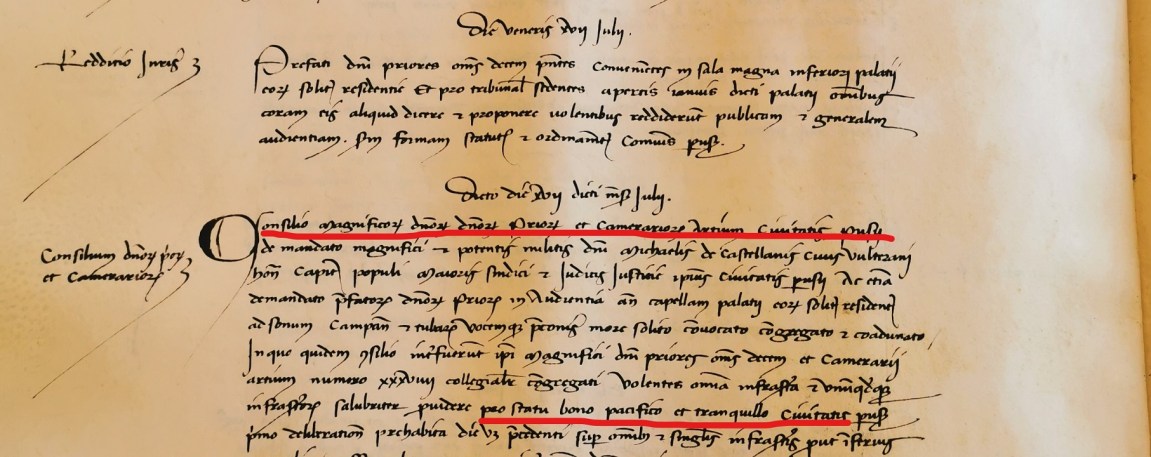 Die veneris xvii Julii.
Redditio Juris
Prefati dni priores oms decem pntes Convenietes in sala magna inferiori palatii
eor solit residentie Et pro tribunal sedentes apertis ianuis dicti palatii omibus
coram eis aliquid dicere et proponere volentibus reddiderut publicam et generalem
audientiam. Sm formam statut et ordinamet Comuis perusi.
Dicto die xvii dicti mes Julii.
Consilium dnor prior
et Camerarior
Consilio Magnificor dnor dnor Prior et Camerarior Artium Civitatis perusii
de mandato magnifici et potentis militis dni Michaelis de Castellanis Civis Vulterani
hon Capit populi Maioris sindici et Judicis Justitie ipius Civitatis perusii Ac etia
demandato prefator dnor Prior in Audientia an capellam palatii eor solit resident
ad sonum Campan et tubar vocemq preconis more solito covocato cogregato et coadunato
In quo quidem consilio interfuerut ipi Magnifici dni priores oms decem et Camerarii
artium numero collegialr congregati volentes omia infrascripta et
infrascptor salubriter providere pro statu bono pacifico et tranquillo Civitatis perusi
pmo deliberation prehabita die precedenti sup omib et singlis infrasptis put